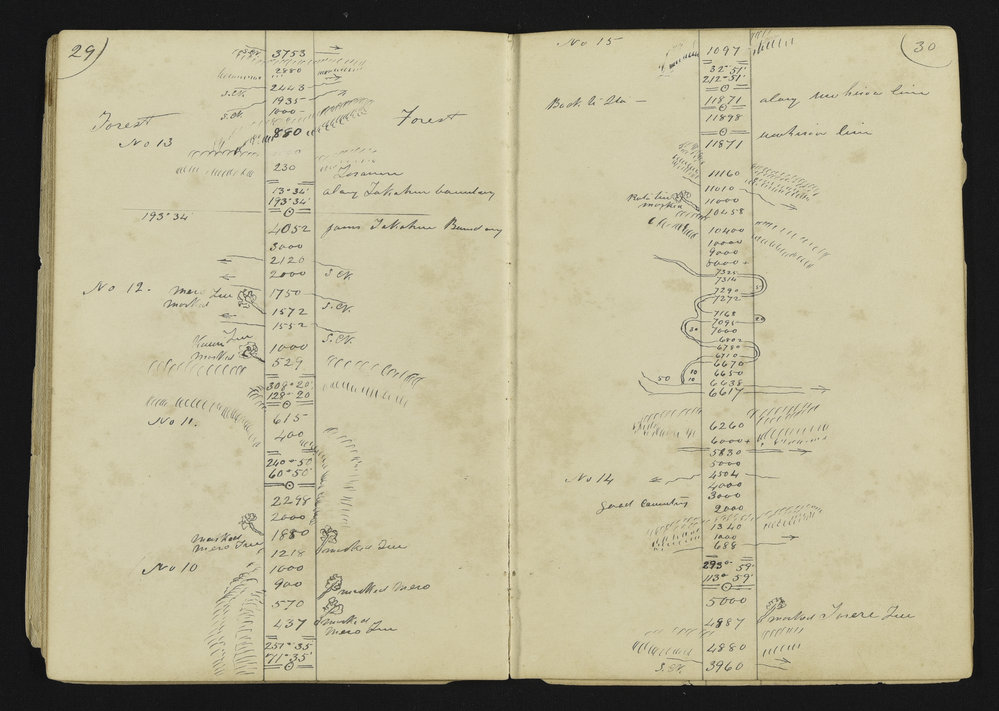 29
3753
2880
S. Ck. 2443
1935
S. Ck. 1000
Forest 880 Forest
No 13
230
13° 34'
193° 34' along Takahue boundary
193° 34'
4052 joins Takahue Boundary
3000
2120
2000 S. Ck.
No 12. Mero Tree marked 1750
1572 S. Ck.
1552
Kauri Tree marked 1000 S. Ck.
529
308° 20'
128° 20
No 11. 615
400
240° 50'
60° 50'
2298
2000
marked Mero Tree 1880
1218 marked Tree
No 10 1000
900 marked Mero
570
437 marked Mero Tree
251° 35'
71° 35'
30
No 15 1097
32° 51'
212° 51'
Back to Sta — 11871 along line
11898
line
11871
11160
11010
Rata tree marked 11000
10458
10400
10000
9000
8000 +
7325
7314
7290
7272
7168
7095 20
30 7000
6802
6780
6710
6670
10 6650
50 10 6638
6617
6260
6000 +
5830
5000
No 14 4504
4000
3000
Good Country 2000
1340
1000
688
293° 59'
113° 59'
5000
4887 marked Tree
4880
S. Ck. 3960